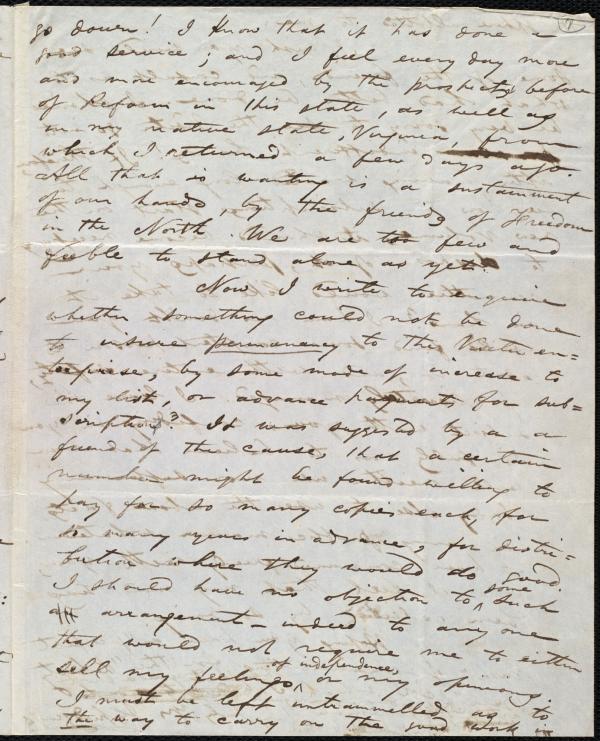 7
go down! I know that it has done a
good service; and I feel every day more
and more encouraged by the prospects before
of Reform in this state, as well as
in my native state, Virginia, from
which I returned a few days ago.
All that is wanting is a sustainment
of our hands, by the friends of Freedom
in the North. We are too few and
feeble to stand alone as yet.
Now I write to enquire
whether something could not be done
to insure permanency to the Visitor en=
terprise, by some mode of increase to
my list, or advance payments for sub=
scriptions? It was suggested by a a
friend of the cause, that a certain
number might be found willing to
pay for so many copies each, for
so many years in advance, for distri=
bution where they would do good.
I should have no objection to some such
arrangement - indeed to any one
that would not require me to either
sell my feelings of independence, or my opinions.
I must be left untrammelled as to
the way to carry on the good work in